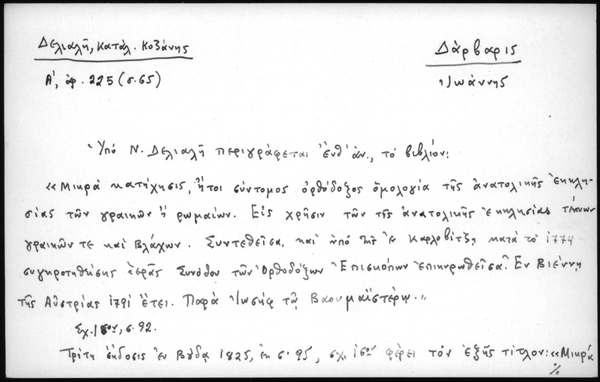 Δελιαλῆ, Κατάλ. Κοζάνης
Δάρβαρις
Α', ἀρ. 225 (σ. 65)
Ἰωάννης
Ὑπὸ Ν. Δελιαλῆ περιγράφεται ἔνθ' ἀν., τὸ βιβλίον:
«Μικρὰ κατήχησις, ἤτοι σύντομος ὀρθόδοξος ὁμολογία τῆς ἀνατολικῆς ἐκκλη-
σίας τῶν γραικῶν ἢ ρωμαίων. Εἰς χρῆσιν τῶν τῆς ἀνατολικῆς ἐκκλησίας τέκνων
γραικῶν τε καὶ Βλάχων. Συντεθεῖσα, καὶ ὑπὸ τῆς ἐν Καρλοβίτζῃ κατὰ τὸ 1774
συγκροτηθείσης ἱερᾶς Συνόδου τῶν Ὀρθοδόξων Ἐπισκόπων ἐπικυρωθεῖσα. Ἐν Βιέννῃ
τῆς Αὐστρίας 1791 ἔτει. Παρὰ Ἰωσὴφ τῷ Βαουμαϊστέρῳ.»
Σχ. 16ον, σ. 92.
Τρίτη ἔκδοσις ἐν Βούδᾳ 1825, ἐκ σ. 95, σχ. φέρει τὸν ἑξῆς τίτλον: «Μικρὰ